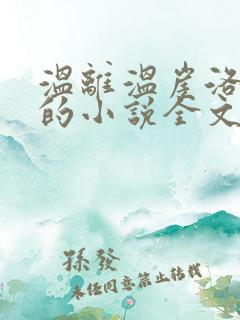 溫離溫崖洛
的小說全文
孫發
未經同意禁止轉載